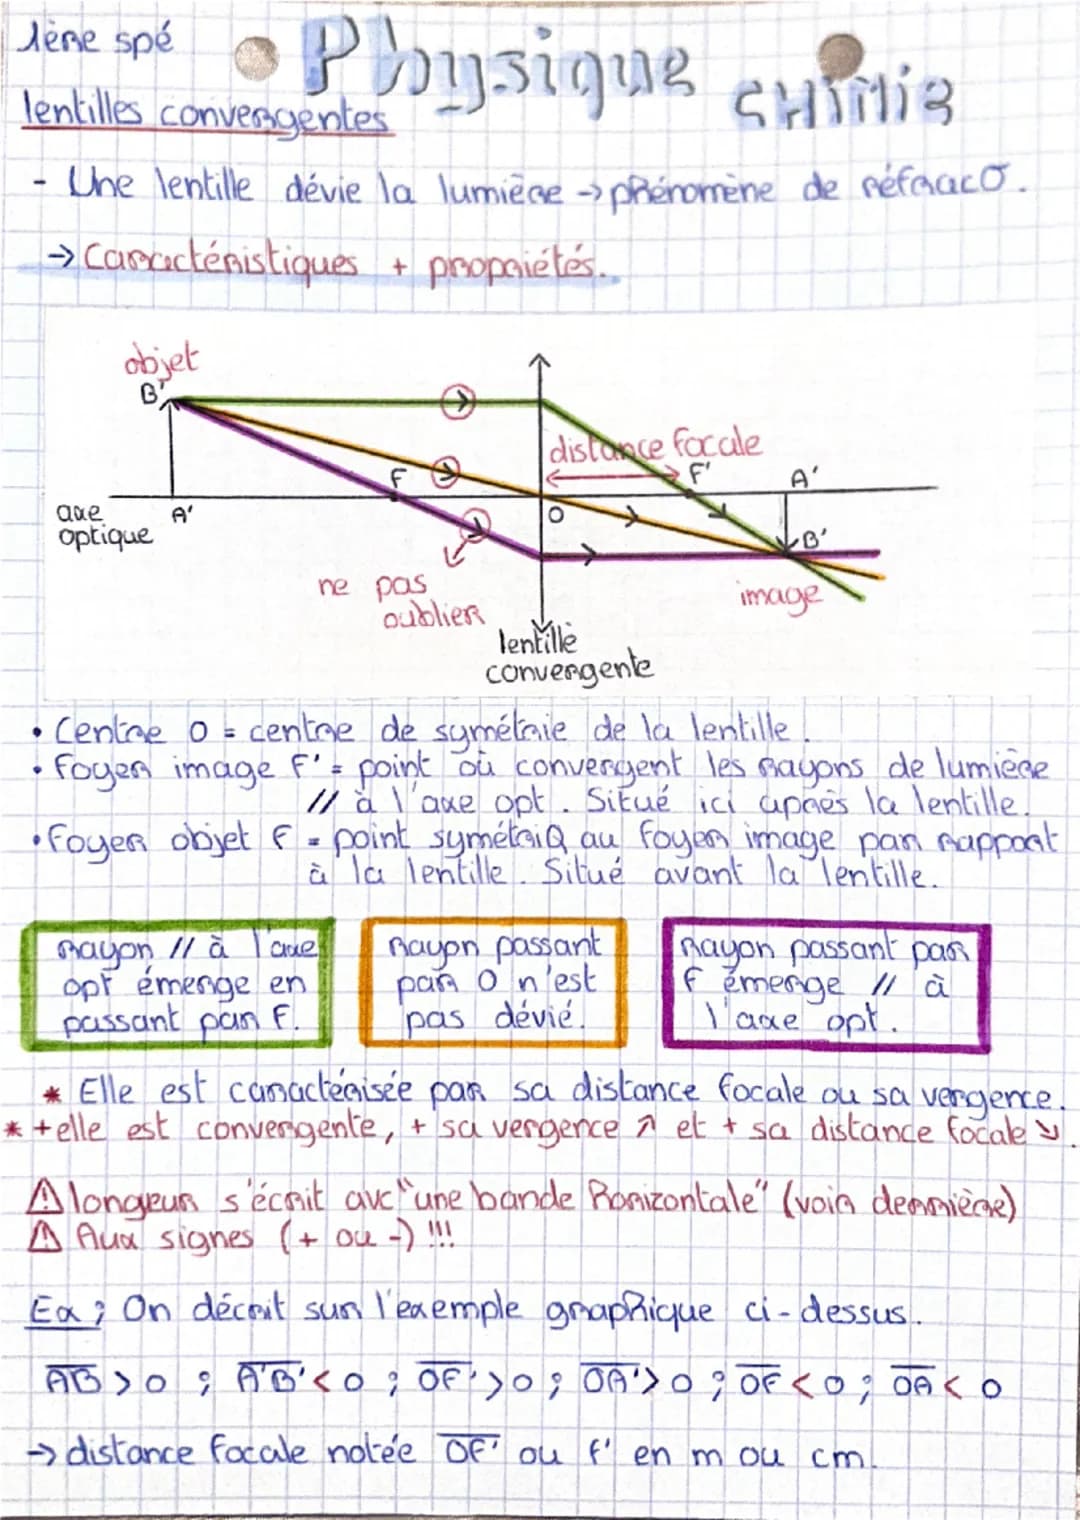 1ère spé
Physique
CHIMIE
lentilles convergentes
- Une lentille dévie la lumière → phénomène de réfractO.
→ Caractéristiques + propriétés.
objet
B'
distance focale
F
F'
A'
axe
optique
A'
O
B'
ne pas
oublier
image
lentille
convergente
• Centre O = centre de symétrie de la lentille.
• Foyer image F' = point où convergent les rayons de lumière
// à l'axe opt. Situé ici après la lentille.
• Foyer objet F = point symétriQ au foyer image par rapport
à la lentille. Situé avant la lentille.
Rayon // à l'axe
opt émerge en
passant par F.
Rayon passant
par O n'est
pas dévié.
Rayon passant par
F émerge // à
l'axe opt.
* Elle est caractérisée par sa distance focale ou sa vergence.
* + elle est convergente, + sa vergence ↗ et + sa distance focale ↘.
⚠ longeur s'écrit avc "une bande horizontale" (voir derrnière)
⚠ Aux signes (+ ou -) !!!
Ex : On décrit sur l'exemple graphique ci-dessus.
A̅B̅ > 0 ; A̅'̅B̅'̅ < 0 ; O̅F̅'̅ > 0 ; O̅A̅'̅ > 0 ; O̅F̅ < 0 ; O̅A̅ < 0
→ distance focale notée O̅F̅'̅ ou f' en m ou cm.